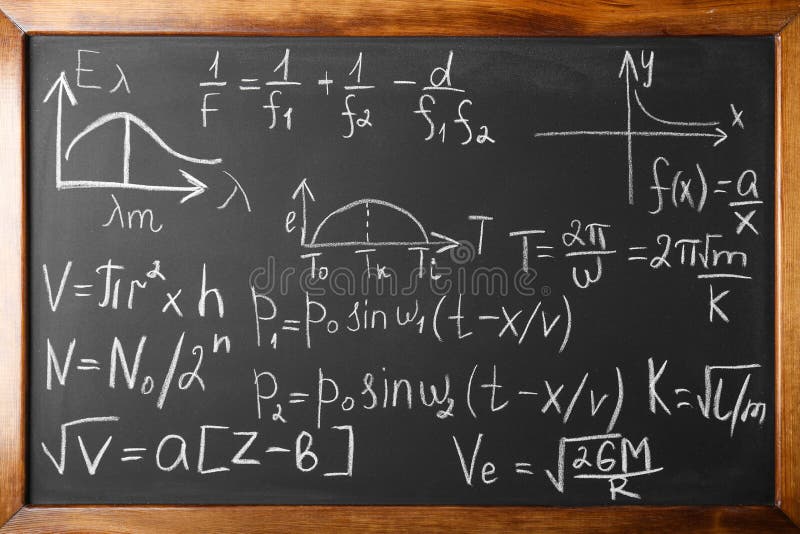 Eλ
λ
λm
1/F = 1/f1 + 1/f2 − d/f1f2
y
x
f(x) = a/x
e
To Tk Ti
T
T = 2π/ω = 2π√m/K
V = πr² x h
p1 = p0 sin ω1 (t − x/v)
N = N0/2ⁿ
p2 = p0 sin ω2 (t − x/v)
√v = a[Z − B]
Ve = √2GM/R
dreamstime